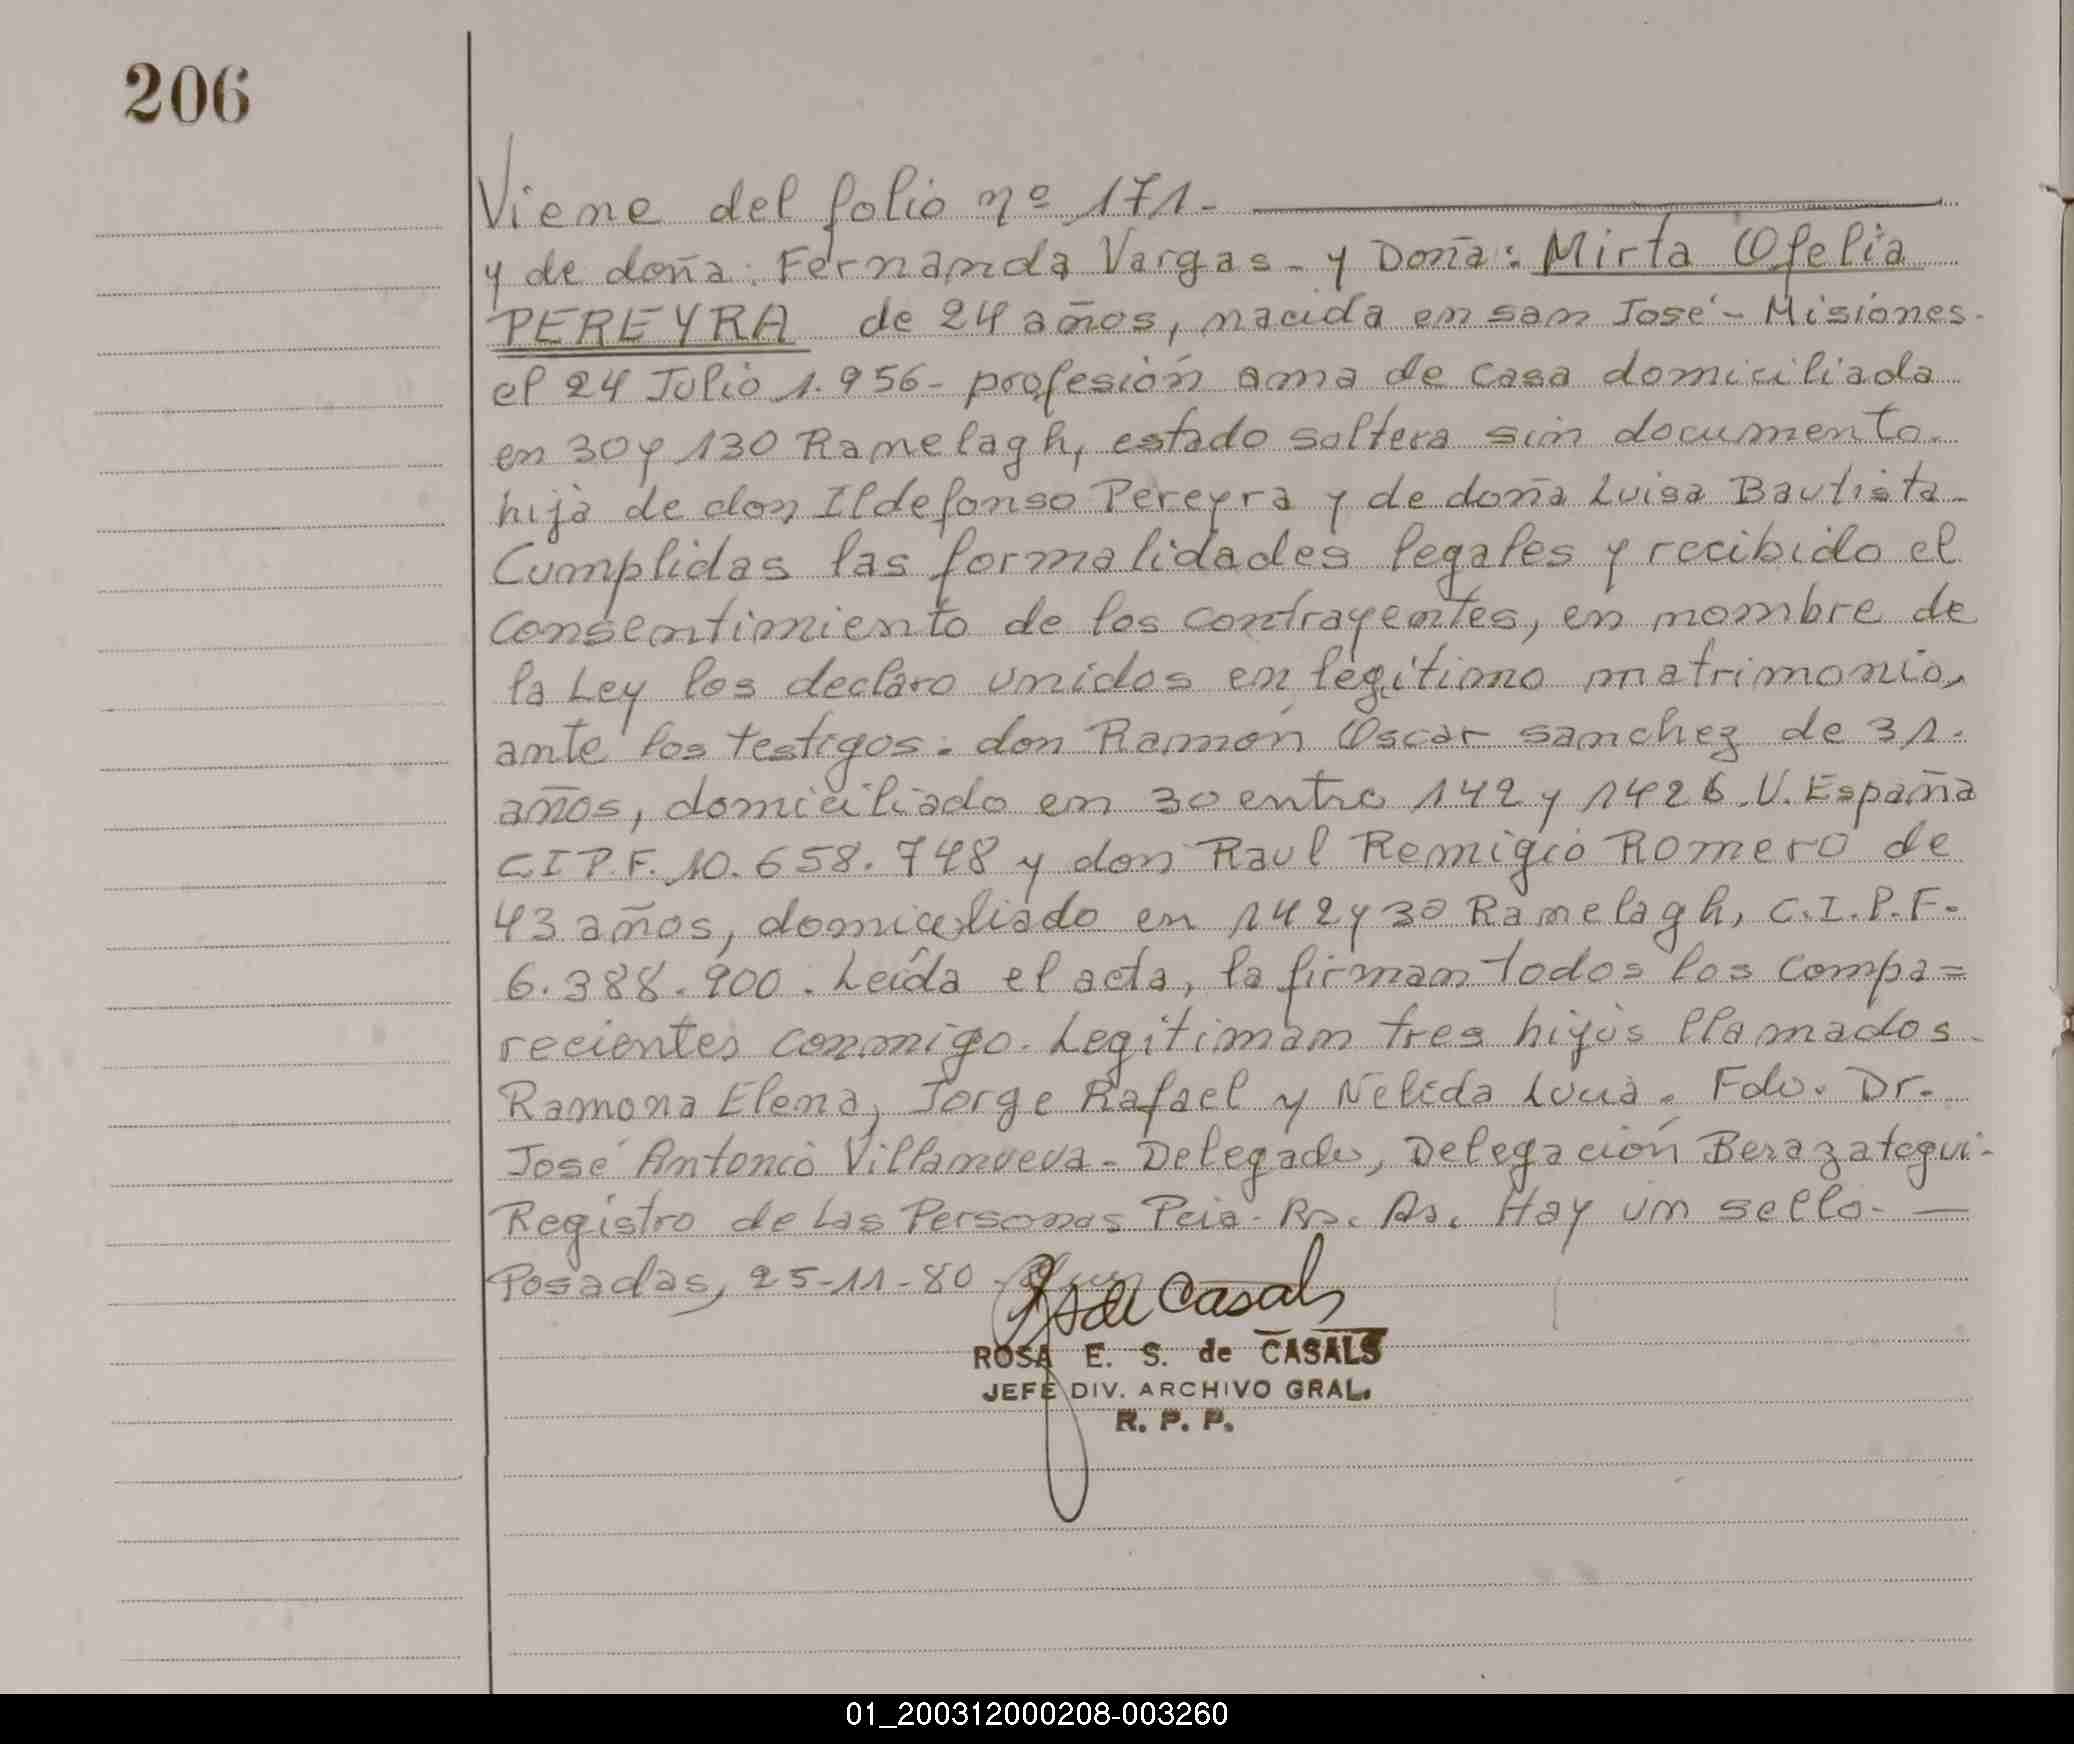 206
Viene del folio nº 171.-
y de doña: Fernanda Vargas - y Doña: Mirta Ofelia
PEREYRA de 24 años, nacida en san José - Misiones.
el 24 Julio 1.956- profesión ama de casa domiciliada
en 30 y 130 Ranelagh, estado soltera sin documento.
hija de don Ildefonso Pereyra y de doña Luisa Bautista-
Cumplidas las formalidades legales y recibido el
consentimiento de los contrayentes, en nombre de
la Ley los declaro unidos en legítimo matrimonio,
ante los testigos: don Ramón Oscar sanchez de 31.
años, domiciliado en 30 entre 142 y 142 B. V. España
C.I P.F. 10.658.748 y don Raul Remigio Romero de
43 años, domiciliado en 142 y 30 Ranelagh, C.I.P.F.
6.388.900. Leída el acta, la firman todos los compa=
recientes conmigo. Legitiman tres hijos llamados-
Ramona Elena, Jorge Rafael y Nelida Lucia. Fdo. Dr.
José Antonio Villanueva - Delegado, Delegación Berazategui-
Registro de Las Personas Pcia. Bs. As. Hay un sello. —
Posadas, 25-11-80.
RS de Casals
ROSA E. S. de CASALS
JEFE DIV. ARCHIVO GRAL.
R. P. P.
01_200312000208-003260